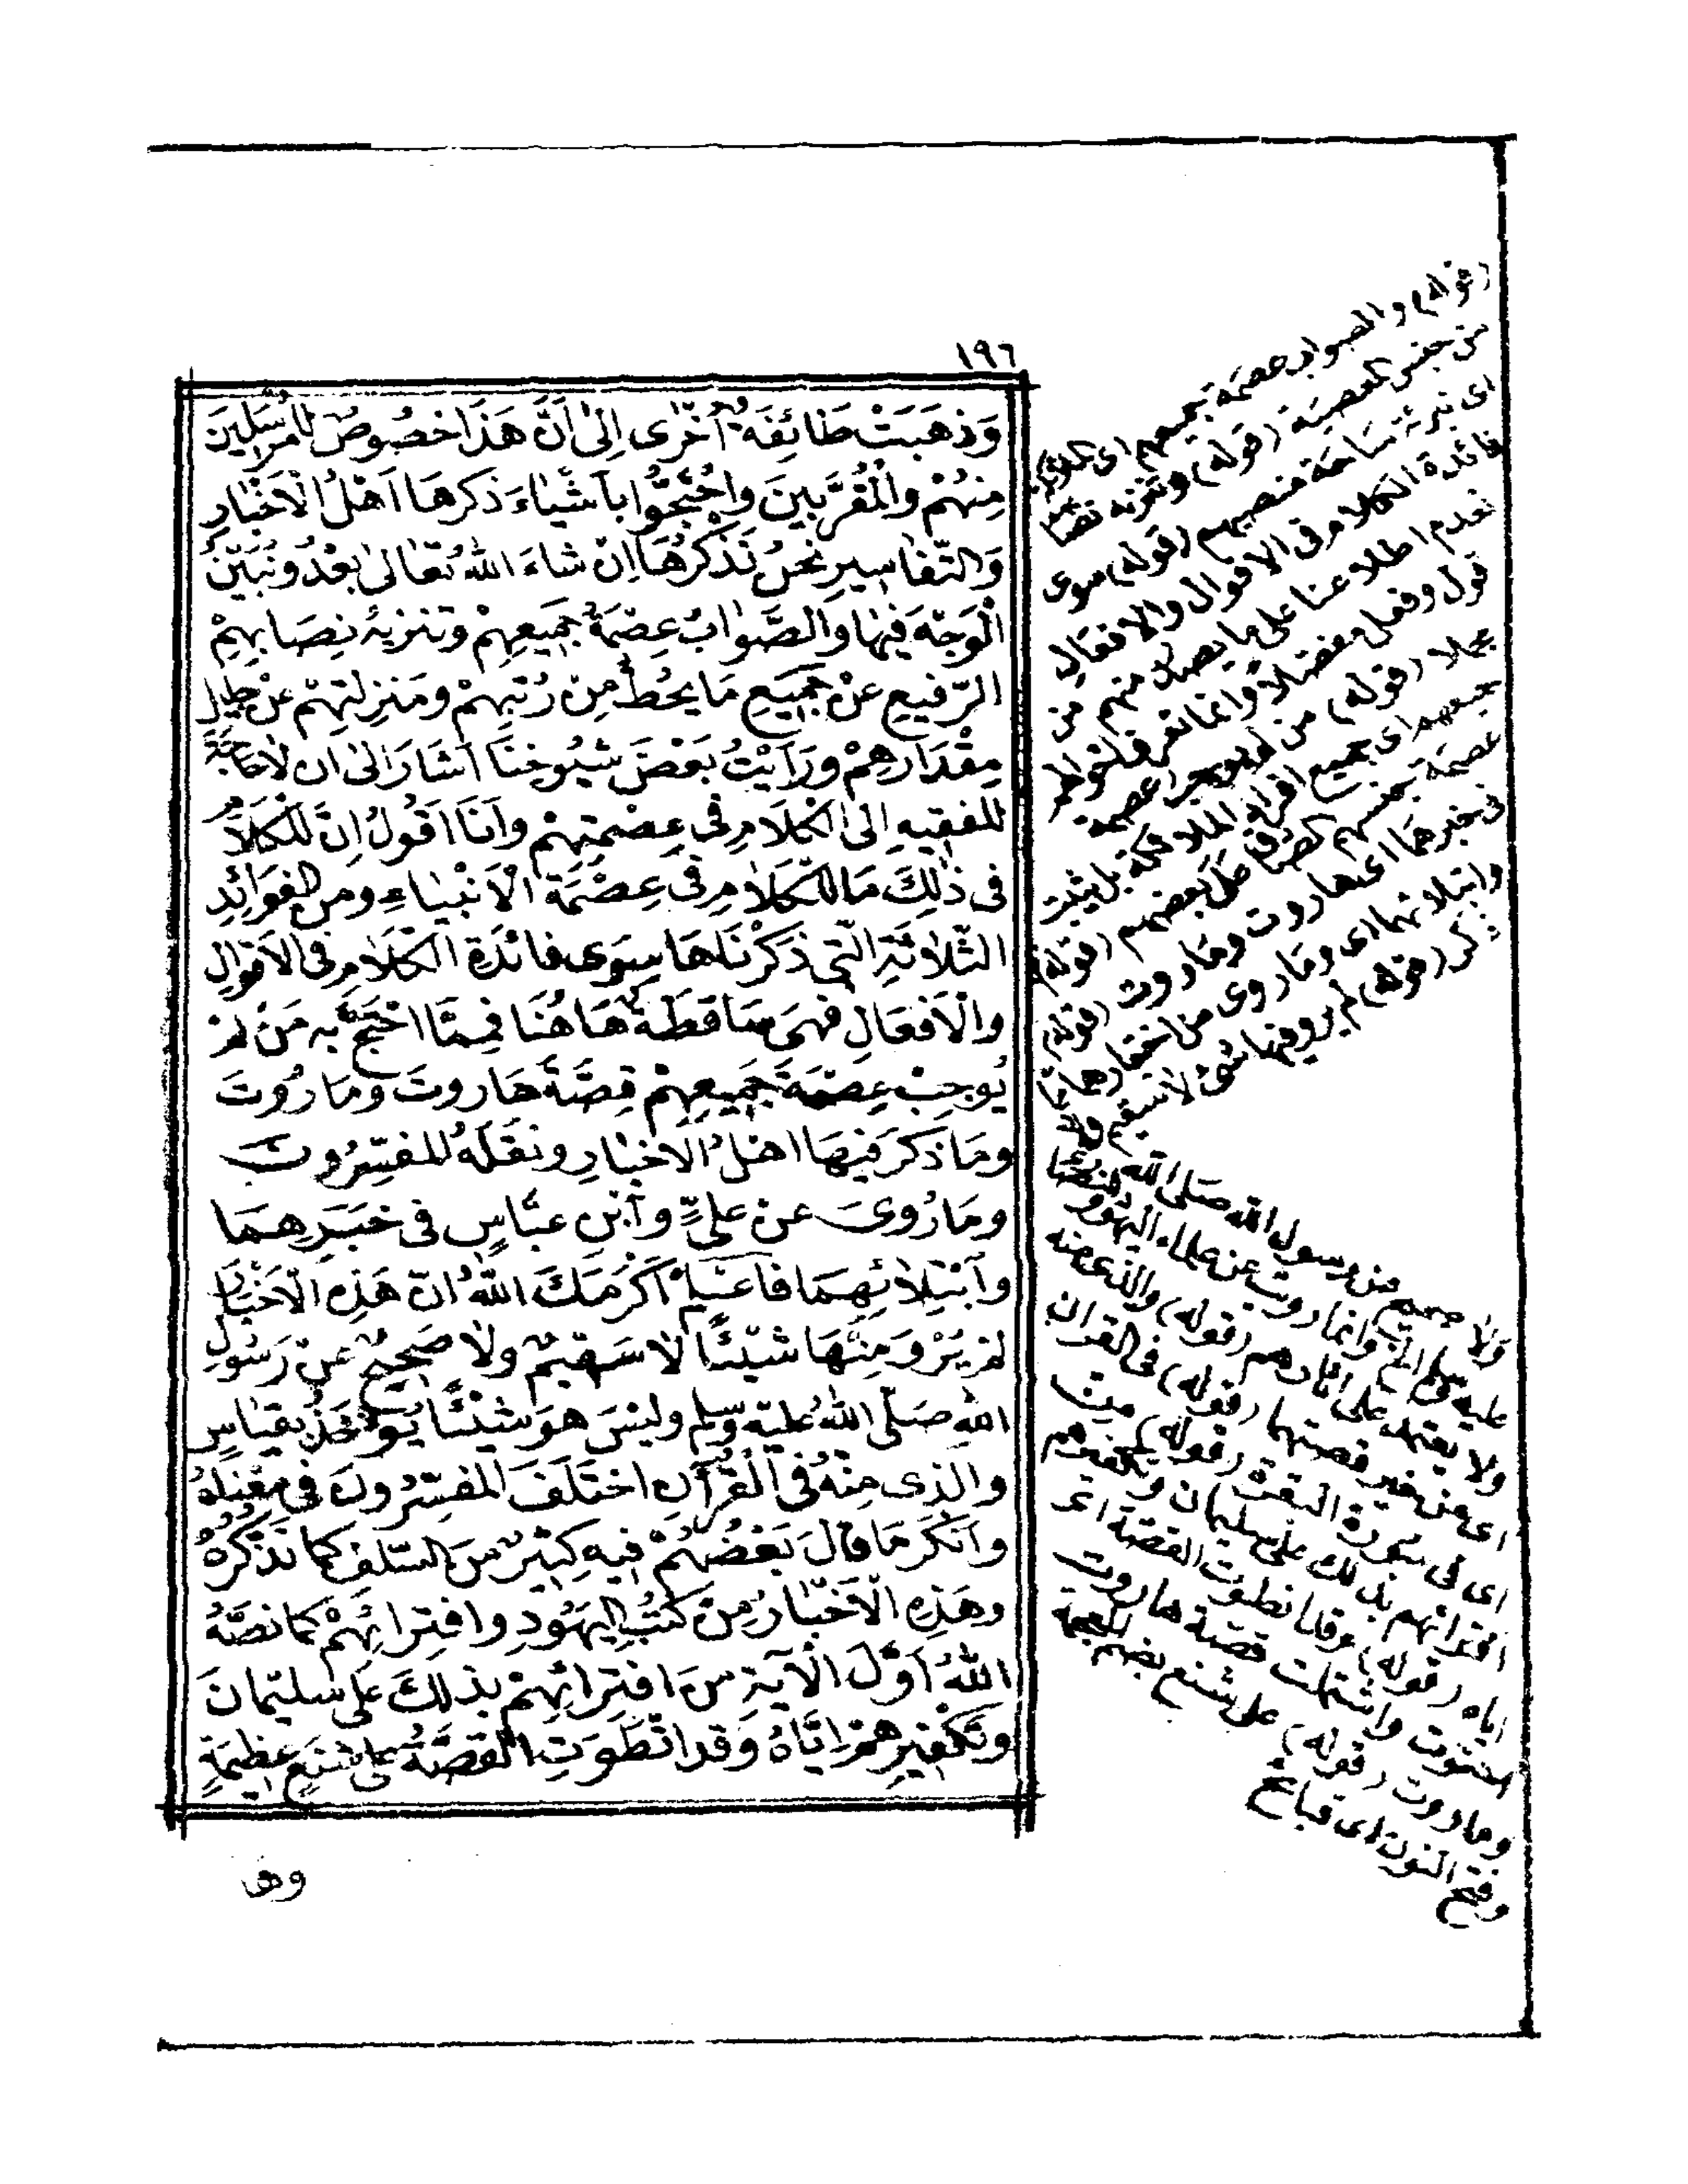 ١٩٦
وَذَهَبَتْ طَائِفَةٌ أُخْرَى إِلَى أَنَّ هَذَا خُصُوصٌ لِلْمُرْسَلِينَ
مِنْهُمْ وَالْمُقَرَّبِينَ وَاحْتَجُّوا بِأَشْيَاءَ ذَكَرَهَا أَهْلُ الْأَخْبَارِ
وَالتَّفَاسِيرِ نَحْنُ نَذْكُرُهَا إِنْ شَاءَ اللهُ تَعَالَى بَعْدُ وَنُبَيِّنُ
الْوَجْهَ فِيهَا وَالصَّوَابُ عِصْمَةُ جَمِيعِهِمْ وَتَنْزِيهُ نِصَابِهِمْ
الرَّفِيعِ عَنْ جَمِيعِ مَا يَحُطُّ مِنْ رُتْبَتِهِمْ وَمَنْزِلَتِهِمْ عَنْ جَلِيلِ
مِقْدَارِهِمْ وَرَأَيْتُ بَعْضَ شُيُوخِنَا أَشَارَ إِلَى أَنْ لَا حَاجَةَ
لِلْفَقِيهِ إِلَى الْكَلَامِ فِي عِصْمَتِهِمْ وَأَنَا أَقُولُ إِنَّ لِلْكَلَامِ
فِي ذَلِكَ مَا لِلْكَلَامِ فِي عِصْمَةِ الْأَنْبِيَاءِ وَمِنَ الْفَوَائِدِ
الثَّلَاثَةِ الَّتِي ذَكَرْنَاهَا سِوَى فَائِدَةِ الْكَلَامِ فِي الْأَقْوَالِ
وَالْأَفْعَالِ فَهِيَ سَاقِطَةٌ هَاهُنَا فَمِمَّا احْتَجَّ بِهِ مَنْ لَمْ
يُوجِبْ عِصْمَةَ جَمِيعِهِمْ قِصَّةُ هَارُوتَ وَمَارُوتَ
وَمَا ذَكَرَ فِيهَا أَهْلُ الْأَخْبَارِ وَنَقَلَهُ الْمُفَسِّرُونَ
وَمَا رُوِيَ عَنْ عَلِيٍّ وَابْنِ عَبَّاسٍ فِي خَبَرِهِمَا
وَابْتِلَائِهِمَا فَاعْلَمْ أَكْرَمَكَ اللهُ أَنَّ هَذِهِ الْأَخْبَارَ
لَمْ يُرْوَ مِنْهَا شَيْئًا لَا سَقِيمٌ وَلَا صَحِيحٌ عَنْ رَسُولِ
اللهِ صَلَّى اللهُ عَلَيْهِ وَسَلَّمَ وَلَيْسَ هُوَ شَيْئًا يُؤْخَذُ بِقِيَاسٍ
وَالَّذِي مِنْهُ فِي الْقُرْآنِ اخْتَلَفَ الْمُفَسِّرُونَ فِي مَعْنَاهُ
وَأَنْكَرَ مَا قَالَ بَعْضُهُمْ فِيهِ كَثِيرٌ مِنَ السَّلَفِ كَمَا نَذْكُرُهُ
وَهَذِهِ الْأَخْبَارُ مِنْ كُتُبِ الْيَهُودِ وَافْتِرَائِهِمْ كَمَا نَصَّهُ
اللهُ أَوَّلَ الْآيَةِ مِنَ افْتِرَائِهِمْ بِذَلِكَ عَلَى سُلَيْمَانَ
وَتَكْفِيرِهِمْ إِيَّاهُ وَقَدِ انْطَوَتِ الْقِصَّةُ عَلَى شُنَعٍ عَظِيمَةٍ
وها
(قوله) والصواب عصمة جميعهم اى
من جنس المعصية (قوله) وتنزيه
اى تبرئة ساحة منصبهم (قوله) سوى
فائدة الكلام فى الاقوال والافعال
لعدم اطلاعنا على ما يصدر منهم من
قول وفعل مفصلا وانما نعرف
مجملا (قوله) من لم يوجب عصمة
جميعهم اى جميع افراد الملائكة بل يثبت
عصمة بعضهم (قوله)
فى خبرهما اى هاروت وماروت (قوله)
وابتلائهما اى وما روى من
(قوله) لم يرو منها شئ لا سقيم ولا
ولا صحيح عن رسول الله صلى الله
عليه وسلم اى وانما رويت عن علماء اليهود
ولا يعتمد على اخبارهم (قوله) والذى منه
اى من خبر قصتهما (قوله) فى القرآن
اى فى سورة البقرة (قوله) من
افترائهم بذلك على سليمان وتكفيرهم
اياه (قوله) وقد انطوت القصة اى
احتوت واشتملت قصة هاروت
وماروت (قوله) على شنع بضم المعجمة
وفتح النون اى قبائح